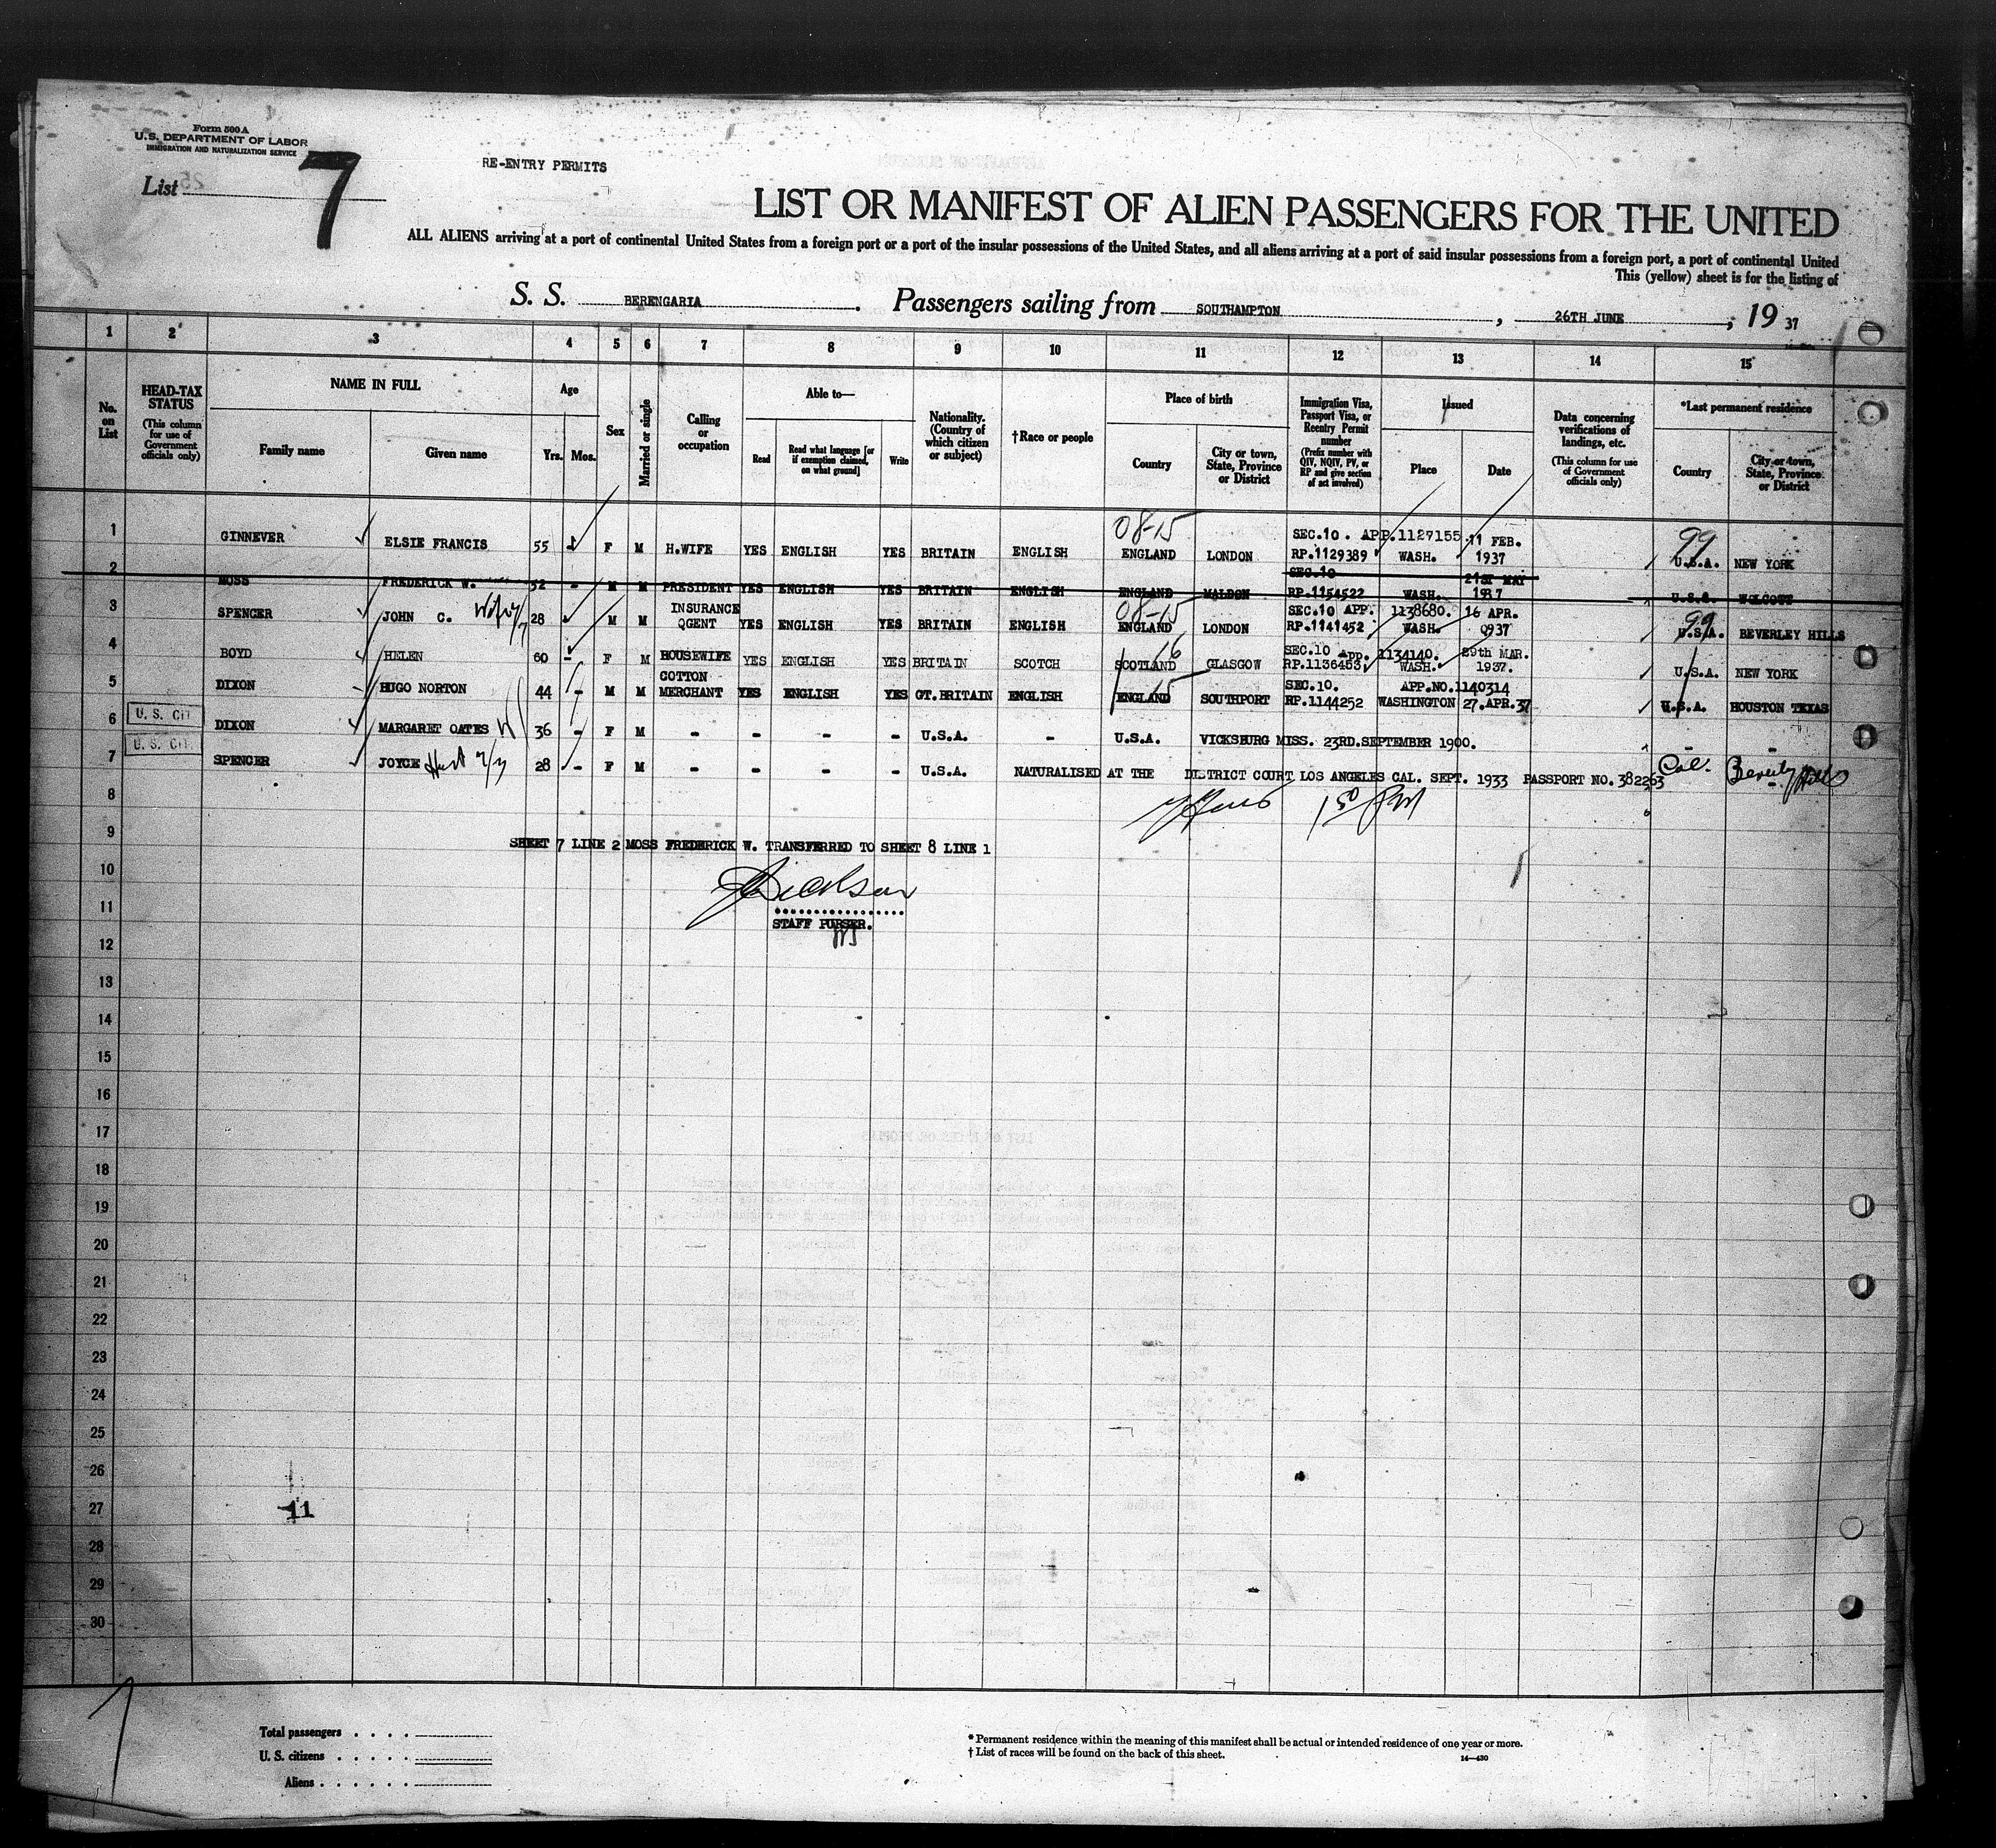 Form 500 A
U.S. DEPARTMENT OF LABOR
IMMIGRATION AND NATURALIZATION SERVICE
List 7
RE-ENTRY PERMITS
LIST OR MANIFEST OF ALIEN PASSENGERS FOR THE UNITED
ALL ALIENS arriving at a port of continental United States from a foreign port or a port of the insular possessions of the United States, and all aliens arriving at a port of said insular possessions from a foreign port, a port of continental United
This (yellow) sheet is for the listing of
S. S. BERENGARIA. Passengers sailing from SOUTHAMPTON, 26TH JUNE, 19 37
1 2 3 4 5 6 7 8 9 10 11 12 13 14 15
No. on List
HEAD-TAX STATUS (This column for use of Government officials only)
NAME IN FULL Family name Given name
Age Yrs. Mos.
Sex
Married or single
Calling or occupation
Able to— Read Read what language [or if exemption claimed, on what ground] Write
Nationality. (Country of which citizen or subject)
†Race or people
Place of birth Country City or town, State, Province or District
Immigration Visa, Passport Visa, or Reentry Permit number (Prefix number with QIV, NQIV, PV, or RP and give section of act involved)
Issued Place Date
Data concerning verifications of landings, etc. (This column for use of Government officials only)
*Last permanent residence Country City or town, State, Province or District
1 GINNEVER ELSIE FRANCIS 55 F M H.WIFE YES ENGLISH YES BRITAIN ENGLISH 08-15 ENGLAND LONDON SEC.10. APP.1127155 RP.1129389 WASH. 11 FEB. 1937 99 U.S.A. NEW YORK
2 MOSS FREDERICK W. 52 - M M PRESIDENT YES ENGLISH YES BRITAIN ENGLISH ENGLAND MALDON SEC.10 RP.1154522 WASH. 21ST MAY 1937 U.S.A. WOLCOTT
3 SPENCER JOHN C. Wife 7/7 28 M M INSURANCE QGENT YES ENGLISH YES BRITAIN ENGLISH 08-15 ENGLAND LONDON SEC.10 APP. 1138680. RP.1141452 WASH. 16 APR. 0937 99 U.S.A. BEVERLEY HILLS
4 BOYD HELEN 60 - F M HOUSEWIFE YES ENGLISH YES BRITAIN SCOTCH 16 SCOTLAND GLASGOW SEC.10 APP. 1134140. RP.1136453 WASH. 29th MAR. 1937. U.S.A. NEW YORK
5 DIXON HUGO NORTON 44 - M M COTTON MERCHANT YES ENGLISH YES GT.BRITAIN ENGLISH 15 ENGLAND SOUTHPORT SEC.10. APP.NO.1140314 RP.1144252 WASHINGTON 27.APR.37 U.S.A. HOUSTON TEXAS
6 U. S. CIT. DIXON MARGARET OATES W 36 - F M - - - - U.S.A. - U.S.A. VICKSBURG MISS. 23RD.SEPTEMBER 1900. - -
7 U. S. CIT. SPENCER JOYCE 28 - F M - - - - U.S.A. NATURALISED AT THE DISTRICT COURT LOS ANGELES CAL. SEPT. 1933 PASSPORT NO. 382263 Cal. Beverly Hills
8
9
SHEET 7 LINE 2 MOSS FREDERICK W. TRANSFERRED TO SHEET 8 LINE 1
10
11
STAFF PURSER.
12
13
14
15
16
17
18
19
20
21
22
23
24
25
26
27 11
28
29
30
Total passengers
U. S. citizens
Aliens
* Permanent residence within the meaning of this manifest shall be actual or intended residence of one year or more.
† List of races will be found on the back of this sheet.
14—430